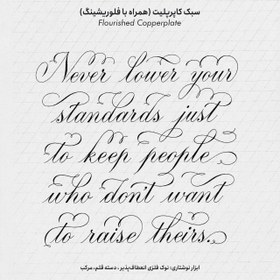 سبک کاپرپلیت (همراه با فلوریشینگ)
Flourished Copperplate
Never lower your
standards just
to keep people
who don't want
to raise theirs.
ابزار نوشتاری: نوک فلزی انعطاف‌پذیر، دسته قلم، مرکب